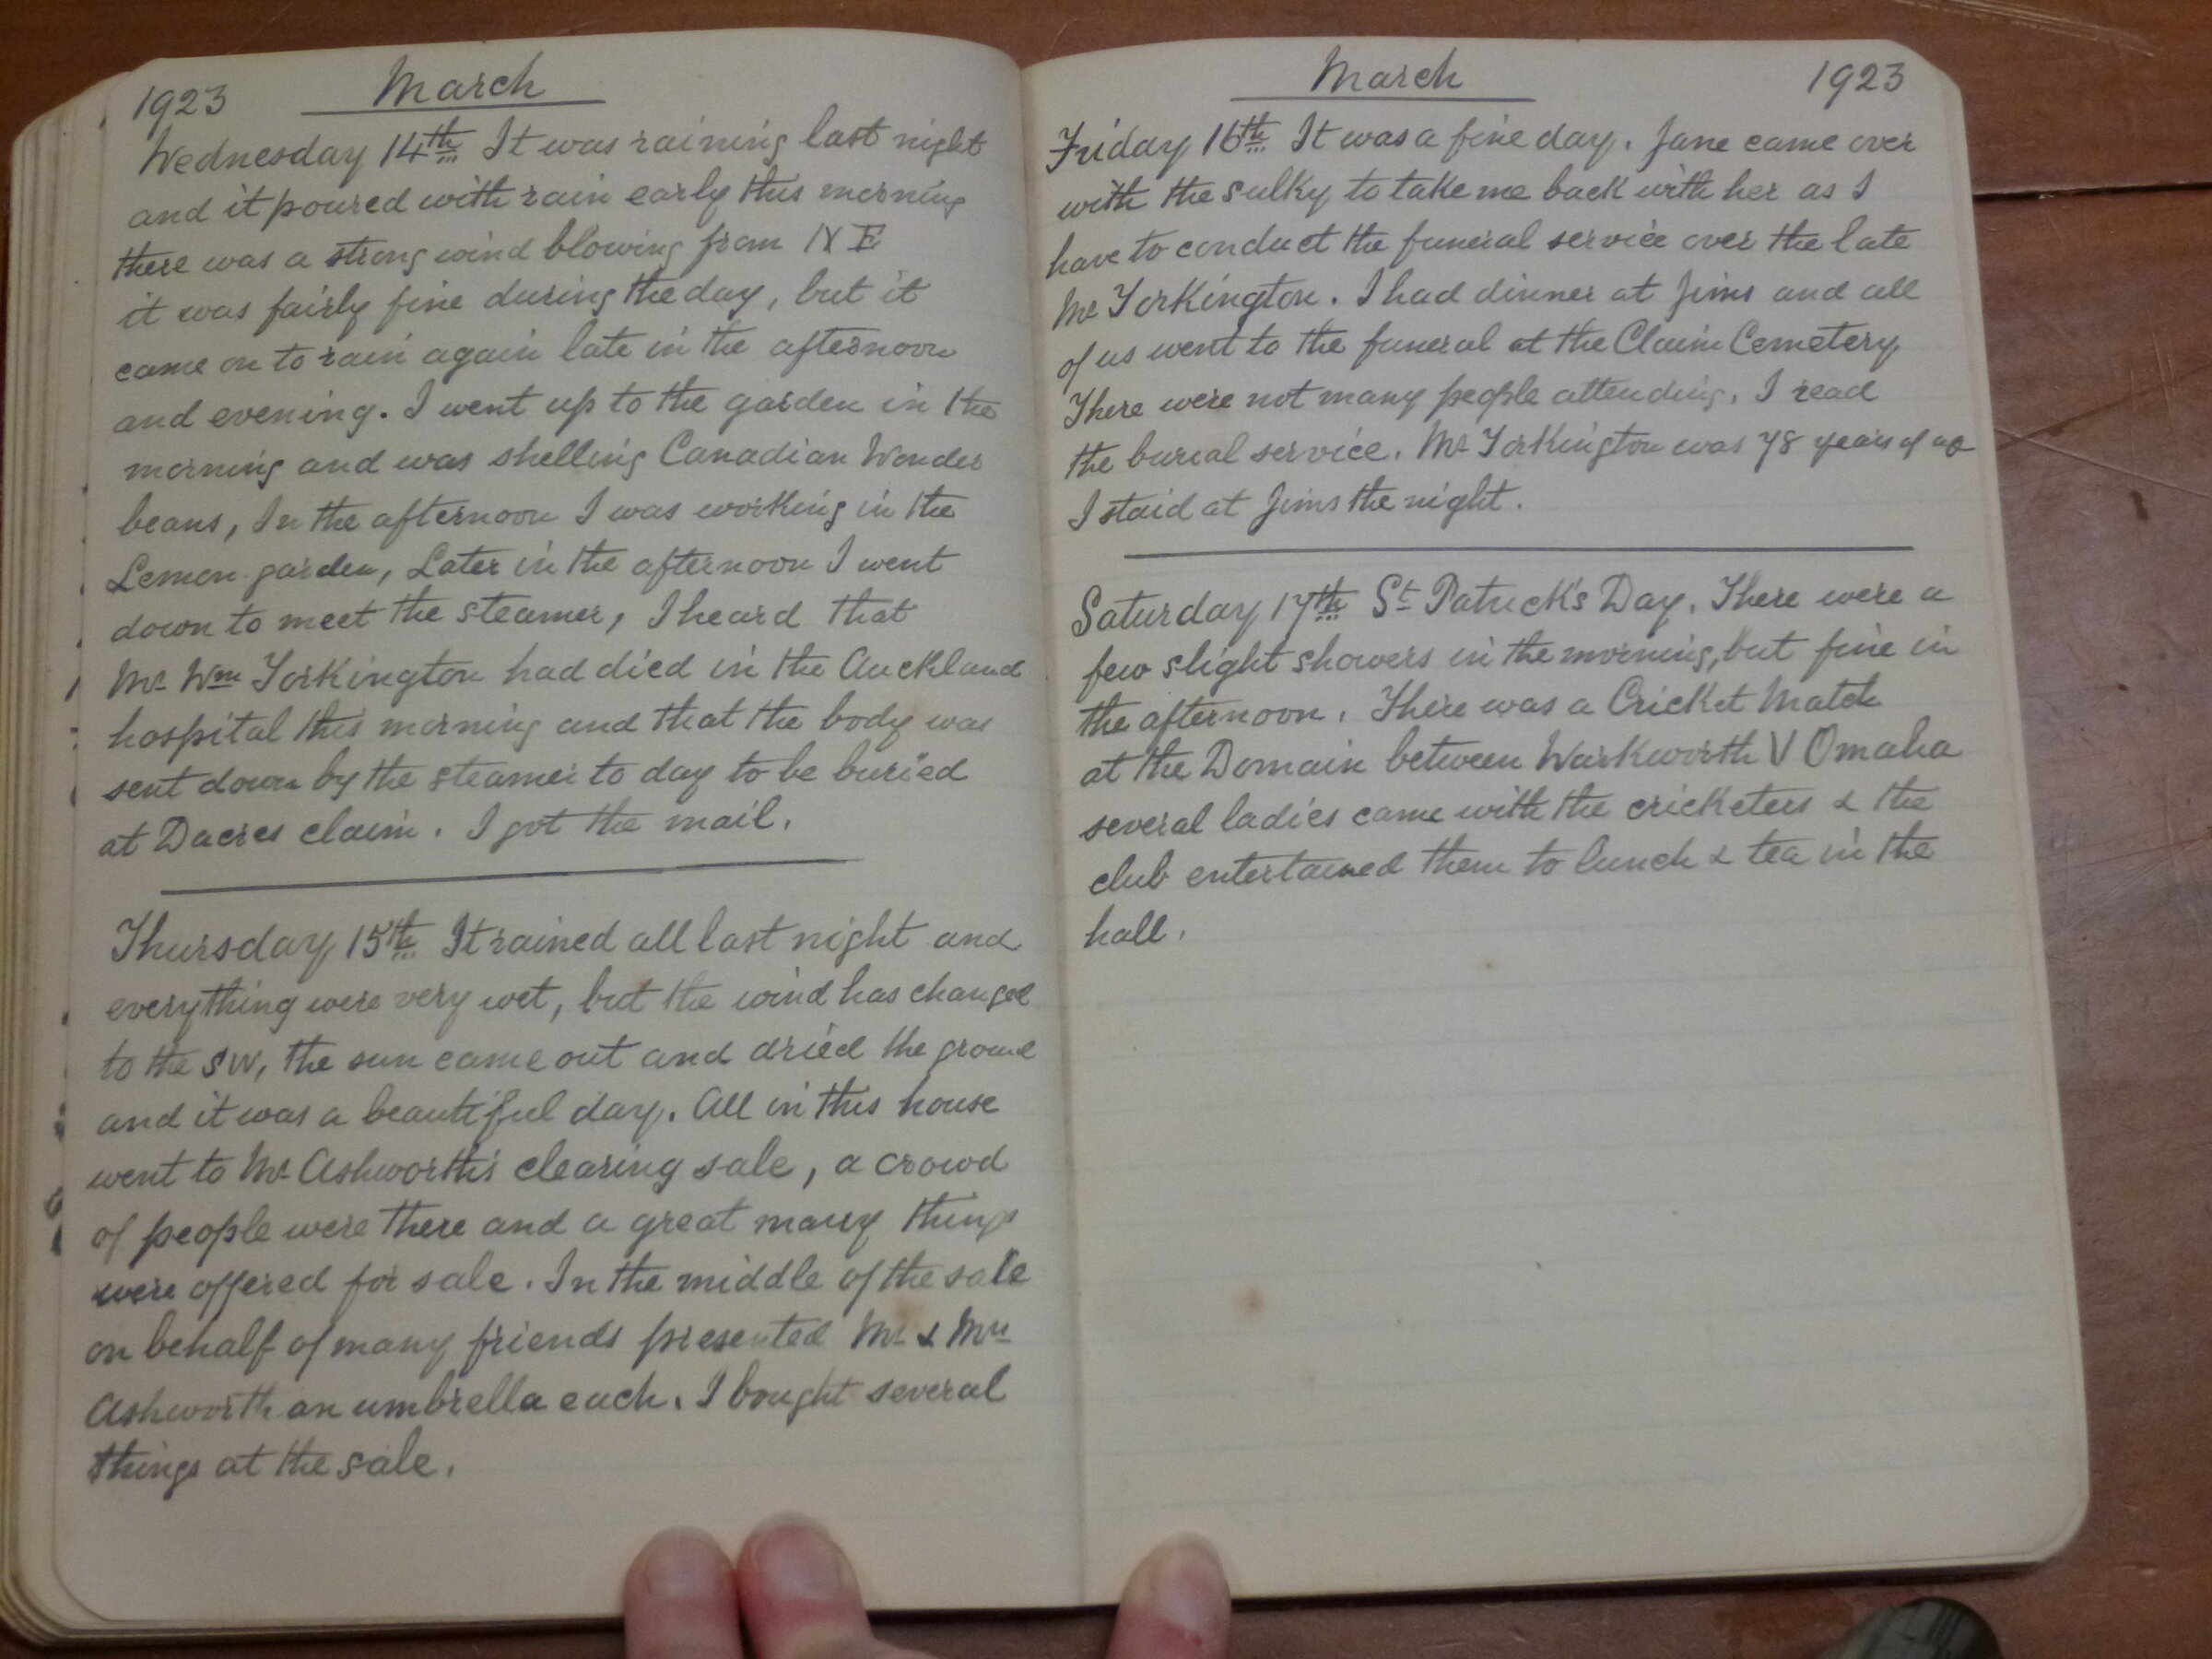 1923 March
Wednesday 14th It was raining last night
and it poured with rain early this morning
there was a strong wind blowing from N E
it was fairly fine during the day, but it
came on to rain again late in the afternoon
and evening. I went up to the garden in the
morning and was shelling Canadian Wonder
beans, In the afternoon I was working in the
Lemon garden, Later in the afternoon I went
down to meet the steamer, I heard that
Mr Wm Torkington had died in the Auckland
hospital this morning and that the body was
sent down by the steamer to day to be buried
at Dacres claim. I got the mail.
Thursday 15th It rained all last night and
everything were very wet, but the wind has changed
to the SW, the sun came out and dried the ground
and it was a beautiful day. All in this house
went to Mr Ashworth's clearing sale, a crowd
of people were there and a great many things
were offered for sale. In the middle of the sale
on behalf of many friends presented Mr & Mrs
Ashworth an umbrella each. I bought several
things at the sale.
March 1923
Friday 16th It was a fine day. Jane came over
with the sulky to take me back with her as I
have to conduct the funeral service over the late
Mr Torkington. I had dinner at Jims and all
of us went to the funeral at the Claim Cemetery
There were not many people attending. I read
the burial service. Mr Torkington was 78 years of age
I staid at Jims the night.
Saturday 17th St Patrick's Day. There were a
few slight showers in the morning, but fine in
the afternoon. There was a Cricket Match
at the Domain between Warkworth V Omaha
several ladies came with the cricketers & the
club entertained them to lunch & tea in the
hall.